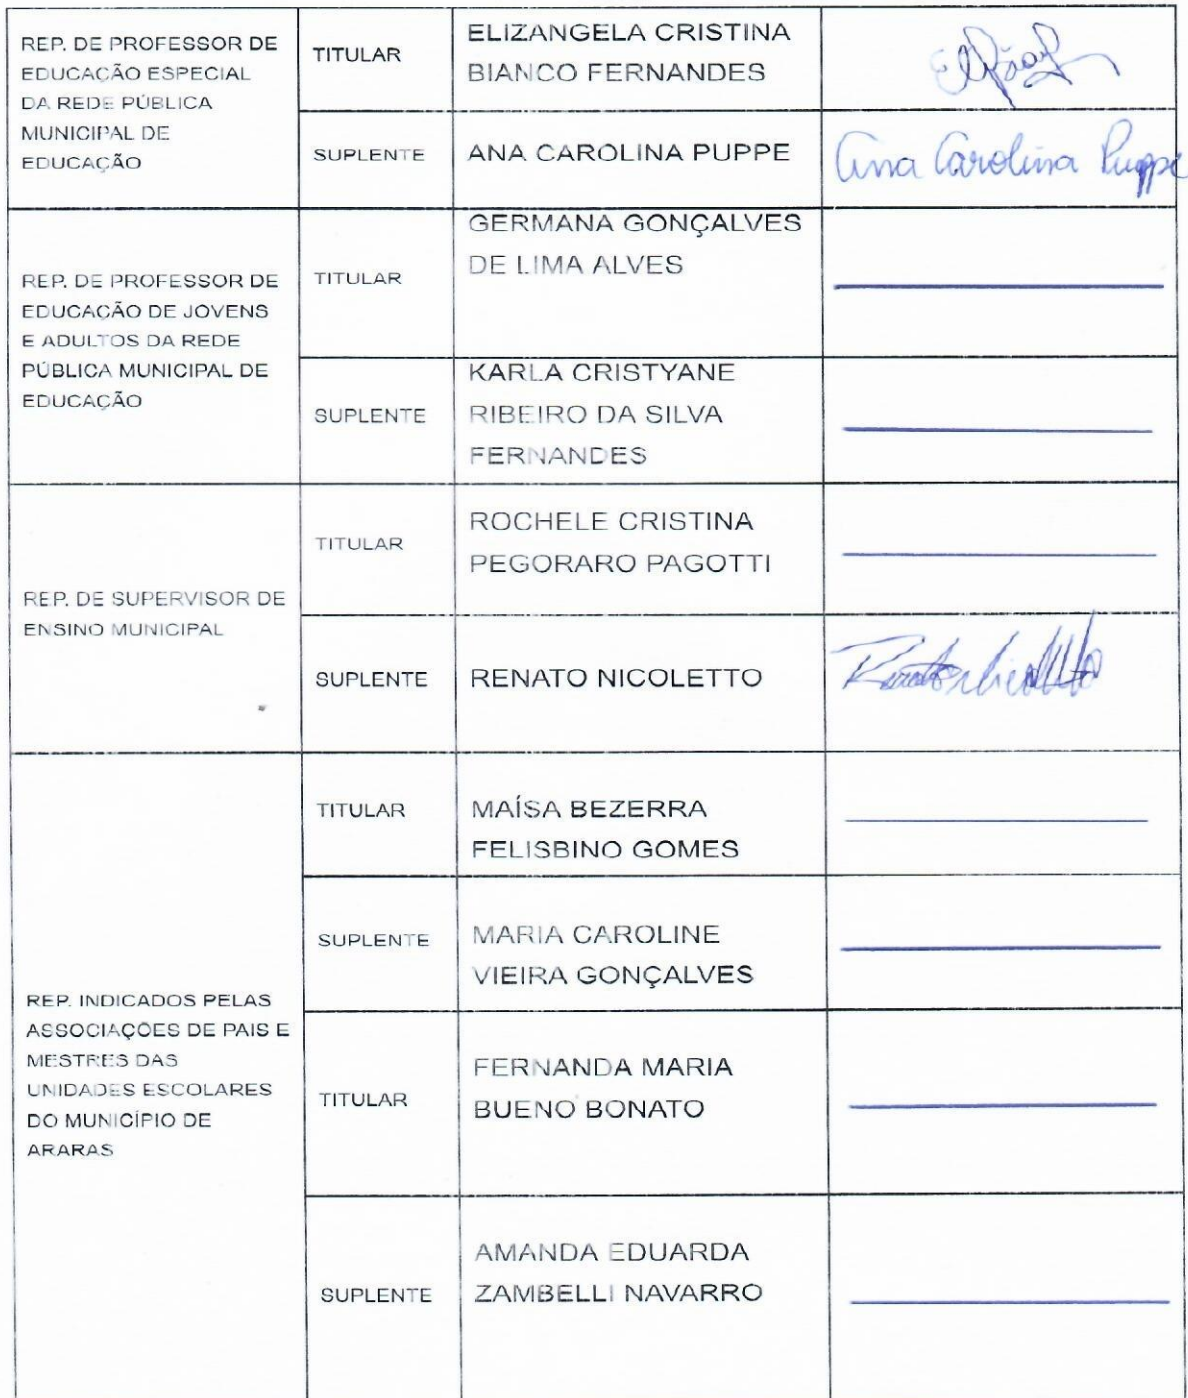 REP. DE PROFESSOR DE
EDUCAÇÃO ESPECIAL
DA REDE PÚBLICA
MUNICIPAL DE
EDUCAÇÃO
TITULAR
ELIZANGELA CRISTINA
BIANCO FERNANDES
SUPLENTE
ANA CAROLINA PUPPE
Ana Carolina Puppe
REP. DE PROFESSOR DE
EDUCAÇÃO DE JOVENS
E ADULTOS DA REDE
PÚBLICA MUNICIPAL DE
EDUCAÇÃO
TITULAR
GERMANA GONÇALVES
DE LIMA ALVES
SUPLENTE
KARLA CRISTYANE
RIBEIRO DA SILVA
FERNANDES
REP. DE SUPERVISOR DE
ENSINO MUNICIPAL
TITULAR
ROCHELE CRISTINA
PEGORARO PAGOTTI
SUPLENTE
RENATO NICOLETTO
Renato Nicoletto
REP. INDICADOS PELAS
ASSOCIAÇÕES DE PAIS E
MESTRES DAS
UNIDADES ESCOLARES
DO MUNICÍPIO DE
ARARAS
TITULAR
MAÍSA BEZERRA
FELISBINO GOMES
SUPLENTE
MARIA CAROLINE
VIEIRA GONÇALVES
TITULAR
FERNANDA MARIA
BUENO BONATO
SUPLENTE
AMANDA EDUARDA
ZAMBELLI NAVARRO